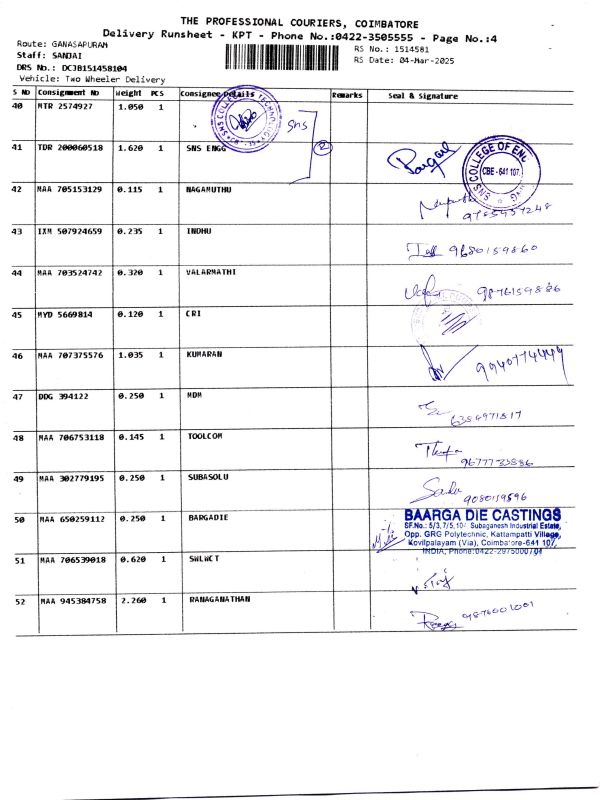 THE PROFESSIONAL COURIERS, COIMBATORE
Delivery Runsheet - KPT - Phone No.:0422-3505555 - Page No.:4
Route: GANASAPURAM
RS No.: 1514581
Staff: SANJAI
RS Date: 04-Mar-2025
DRS No.: DCJB151458104
Vehicle: Two Wheeler Delivery
S NO Consignment No Weight PCS Consignee Details Remarks Seal & Signature
40 MTR 2574927 1.050 1
SNS
2
41 TDR 200060518 1.620 1 SNS ENGG
SNS COLLEGE OF ENGG
CBE - 641 107.
42 MAA 705153129 0.115 1 NAGAMUTHU
43 IXM 507924659 0.235 1 INDHU
9680159860
44 MAA 703524742 0.320 1 VALARMATHI
9876159886
45 MYD 5669814 0.120 1 CRI
46 MAA 707375576 1.035 1 KUMARAN
9940774449
47 DDG 394122 0.250 1 MDM
6384971817
48 MAA 706753118 0.145 1 TOOLCOM
9677733886
49 MAA 302779195 0.250 1 SUBASOLU
9080119596
50 MAA 650259112 0.250 1 BARGADIE
BAARGA DIE CASTINGS
SF.No.: 5/3,7/5,10/ Subaganesh Industrial Estate,
Opp. GRG Polytechnic, Kattampatti Village,
Kovilpalayam (Via), Coimbatore-641 107,
INDIA, Phone:0422-2975000/01
51 MAA 706539018 0.620 1 SWLWCT
52 MAA 945384758 2.260 1 RANAGANATHAN
9876001001